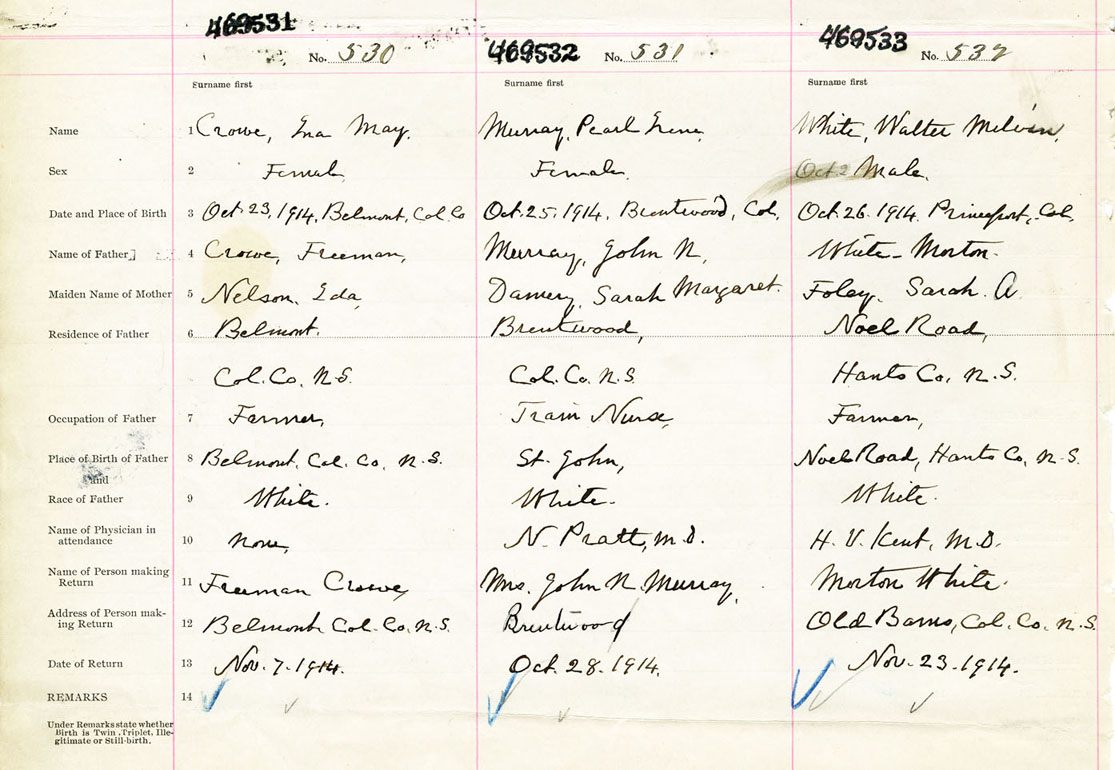 469531 469532 469533
No. 530 No. 531 No. 532
Surname first Surname first Surname first
Name 1 Crowe, Ena May. Murray, Pearl Irene, White, Walter Melvin,
Sex 2 Female Female. Oct 2 Male.
Date and Place of Birth 3 Oct. 23, 1914, Belmont, Col. Co Oct. 25. 1914. Brentwood, Col. Oct. 26. 1914. Princeport, Col.
Name of Father 4 Crowe, Freeman, Murray, John N, White - Morton.
Maiden Name of Mother 5 Nelson, Eda Damery, Sarah Margaret. Foley. Sarah. A
Residence of Father 6 Belmont. Brentwood, Noel Road,
Col. Co. N.S. Col. Co. N.S. Hants Co, N.S.
Occupation of Father 7 Farmer, Train Nurse, Farmer,
Place of Birth of Father 8 Belmont, Col. Co, N.S. St. John, Noel Road, Hants Co, N.S.
and
Race of Father 9 White. White. White.
Name of Physician in
attendance 10 None, N. Pratt, M.D. H. V. Kent, M.D.
Name of Person making
Return 11 Freeman Crowe, Mrs. John N. Murray, Morton White.
Address of Person mak-
ing Return 12 Belmont Col. Co, N.S. Brentwood Old Barns, Col. Co. N.S.
Date of Return 13 Nov. 7. 1914. Oct. 28. 1914. Nov. 23. 1914.
REMARKS 14
Under Remarks state whether
Birth is Twin, Triplet, Ille-
gitimate or Still-birth.